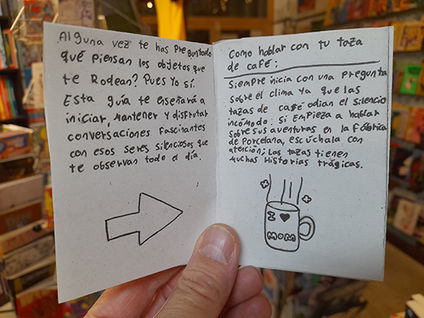 Alguna vez te has preguntado
qué piensan los objetos que
te Rodean? Pues Yo sí.
Esta guía te enseñará a
iniciar, mantener y disfrutar
conversaciones fascinantes
con esos seres silenciosos que
te observan todo el día.
Como hablar con tu taza
de café:
Siempre inicia con una pregunta
sobre el clima ya que las
tazas de café odian el silencio
incómodo. Si empieza a hablar
sobre sus aventuras en la fábrica
de Porcelana, escúchala con
atención; Las tazas tienen
muchas historias trágicas.
I ♥
MOM